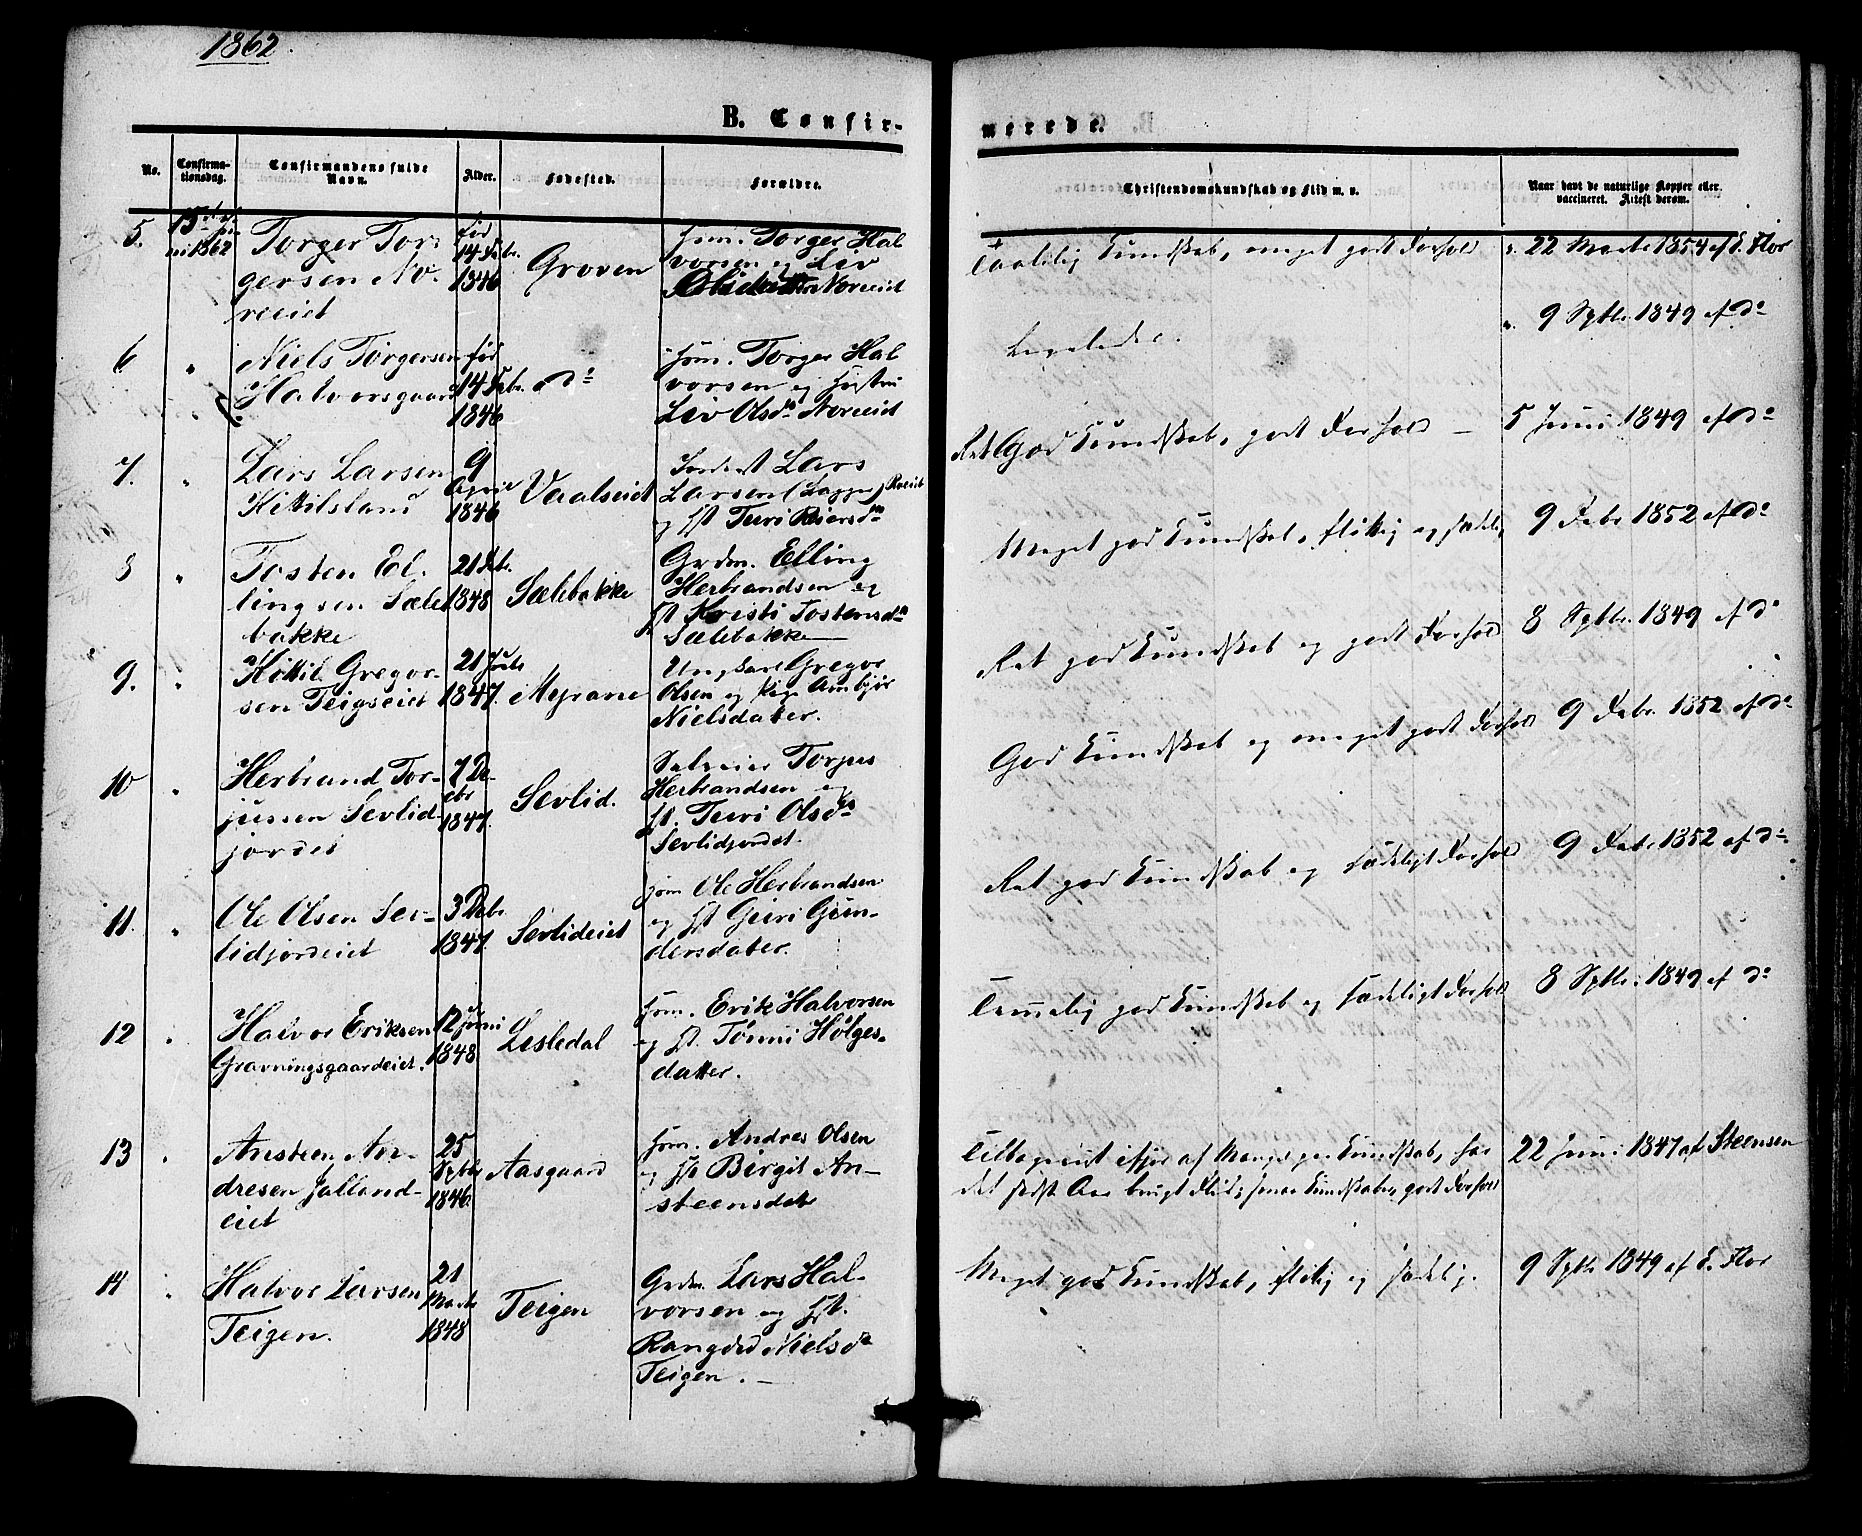 1862.
B. Confir-
merede.
No.
Confirma-
tionsdag.
Confirmandens fulde
Navn.
Alder.
Fødested.
Forældre.
Christendomskundskab og Flid m. v.
Naar havt de naturlige Kopper eller
vaccineret. Attest derom.
5.
15de Ju
ni 1862
Torger Tor
gersen No
reeiet
fød
14 Febr.
1846
Groven
Torger Hal
vorsen og Liv
Noreeiet
Taalelig Kundskab, meget godt Forhold
22 Marts 1854 af E. Flor
6
"
Niels Torgersen
Halvorsgaard
fød
14 Febr.
1846
do
Torger Hal
vorsen og Hustru
Liv Olsdr Noreeiet
Ligeledes.
9 Sptbr. 1849 af do
7.
"
Lars Larsen
Kittilsland
9
April
1846
Vaalseiet
Lars
Larsen
og Hst Turi Reiersdr
Ret God Kundskab, godt Forhold
5 Juni 1849 af do
8
"
Tosten El
lingsen Sæle
bakke
21 Febr.
1848
Sælebakke
Grdm. Elling
Herbrandsen og
Hst Kristi Tostensdr
Sælebakke
Meget god Kundskab, flittig og sædelig
9 Febr 1852 af do
9.
"
Kittil Gregor-
sen Teigseiet
21 Juli
1847.
Mejrane
Ungkarl Gregor
Olsen og Pige Ambjør
Nielsdatter.
Ret god Kundskab og godt Forhold
8 Sptbr. 1849 af do
10
"
Herbrand Tor-
jussen Sevlid-
jordet
7 De-
cbr
1847.
Sevlid.
Torjus
Herbrandsen og
Hst. Turi Olsdr
Sevlidjordet.
God Kundskab og meget godt Forhold
9 Febr. 1852 af do
11.
"
Ole Olsen Sev-
lidjordeiet
3 Debr
1847
Sevlideiet
Ole Herbrandsen
og Hst Guri Gun-
dersdatter.
Ret god Kundskab og sædeligt Forhold
9 Febr 1852 af do
12
"
Halvor Eriksen
Gravningsgaardeiet.
12 Juni
1848
Lisledal
Erik Halvorsen
og Hst. Tönni Holges-
datter.
Temmelig god Kundskab og sædeligt Forhold
8 Sptbr. 1849 af do
13
"
Ansteen An-
dresen Jalland-
eiet
25
Sptbr
1846.
Aasgaard
Andres Olsen
og Hst Birgit An-
steensdatr
Tilbageviist ifjor af Mangel paa Kundskab, har
det sidste Aar brugt Flid; Kundskaber, godt Forhold
22 Juni 1847 af Steensen
14
"
Halvor Larsen
Teigen.
21
Marts
1848
Teigen
Grdm. Lars Hal-
vorsen og Hst.
Rangdid Nielsdr
Teigen.
Meget god Kundskab, flittig og sædelig.
9 Sptbr 1849 af E. Flor